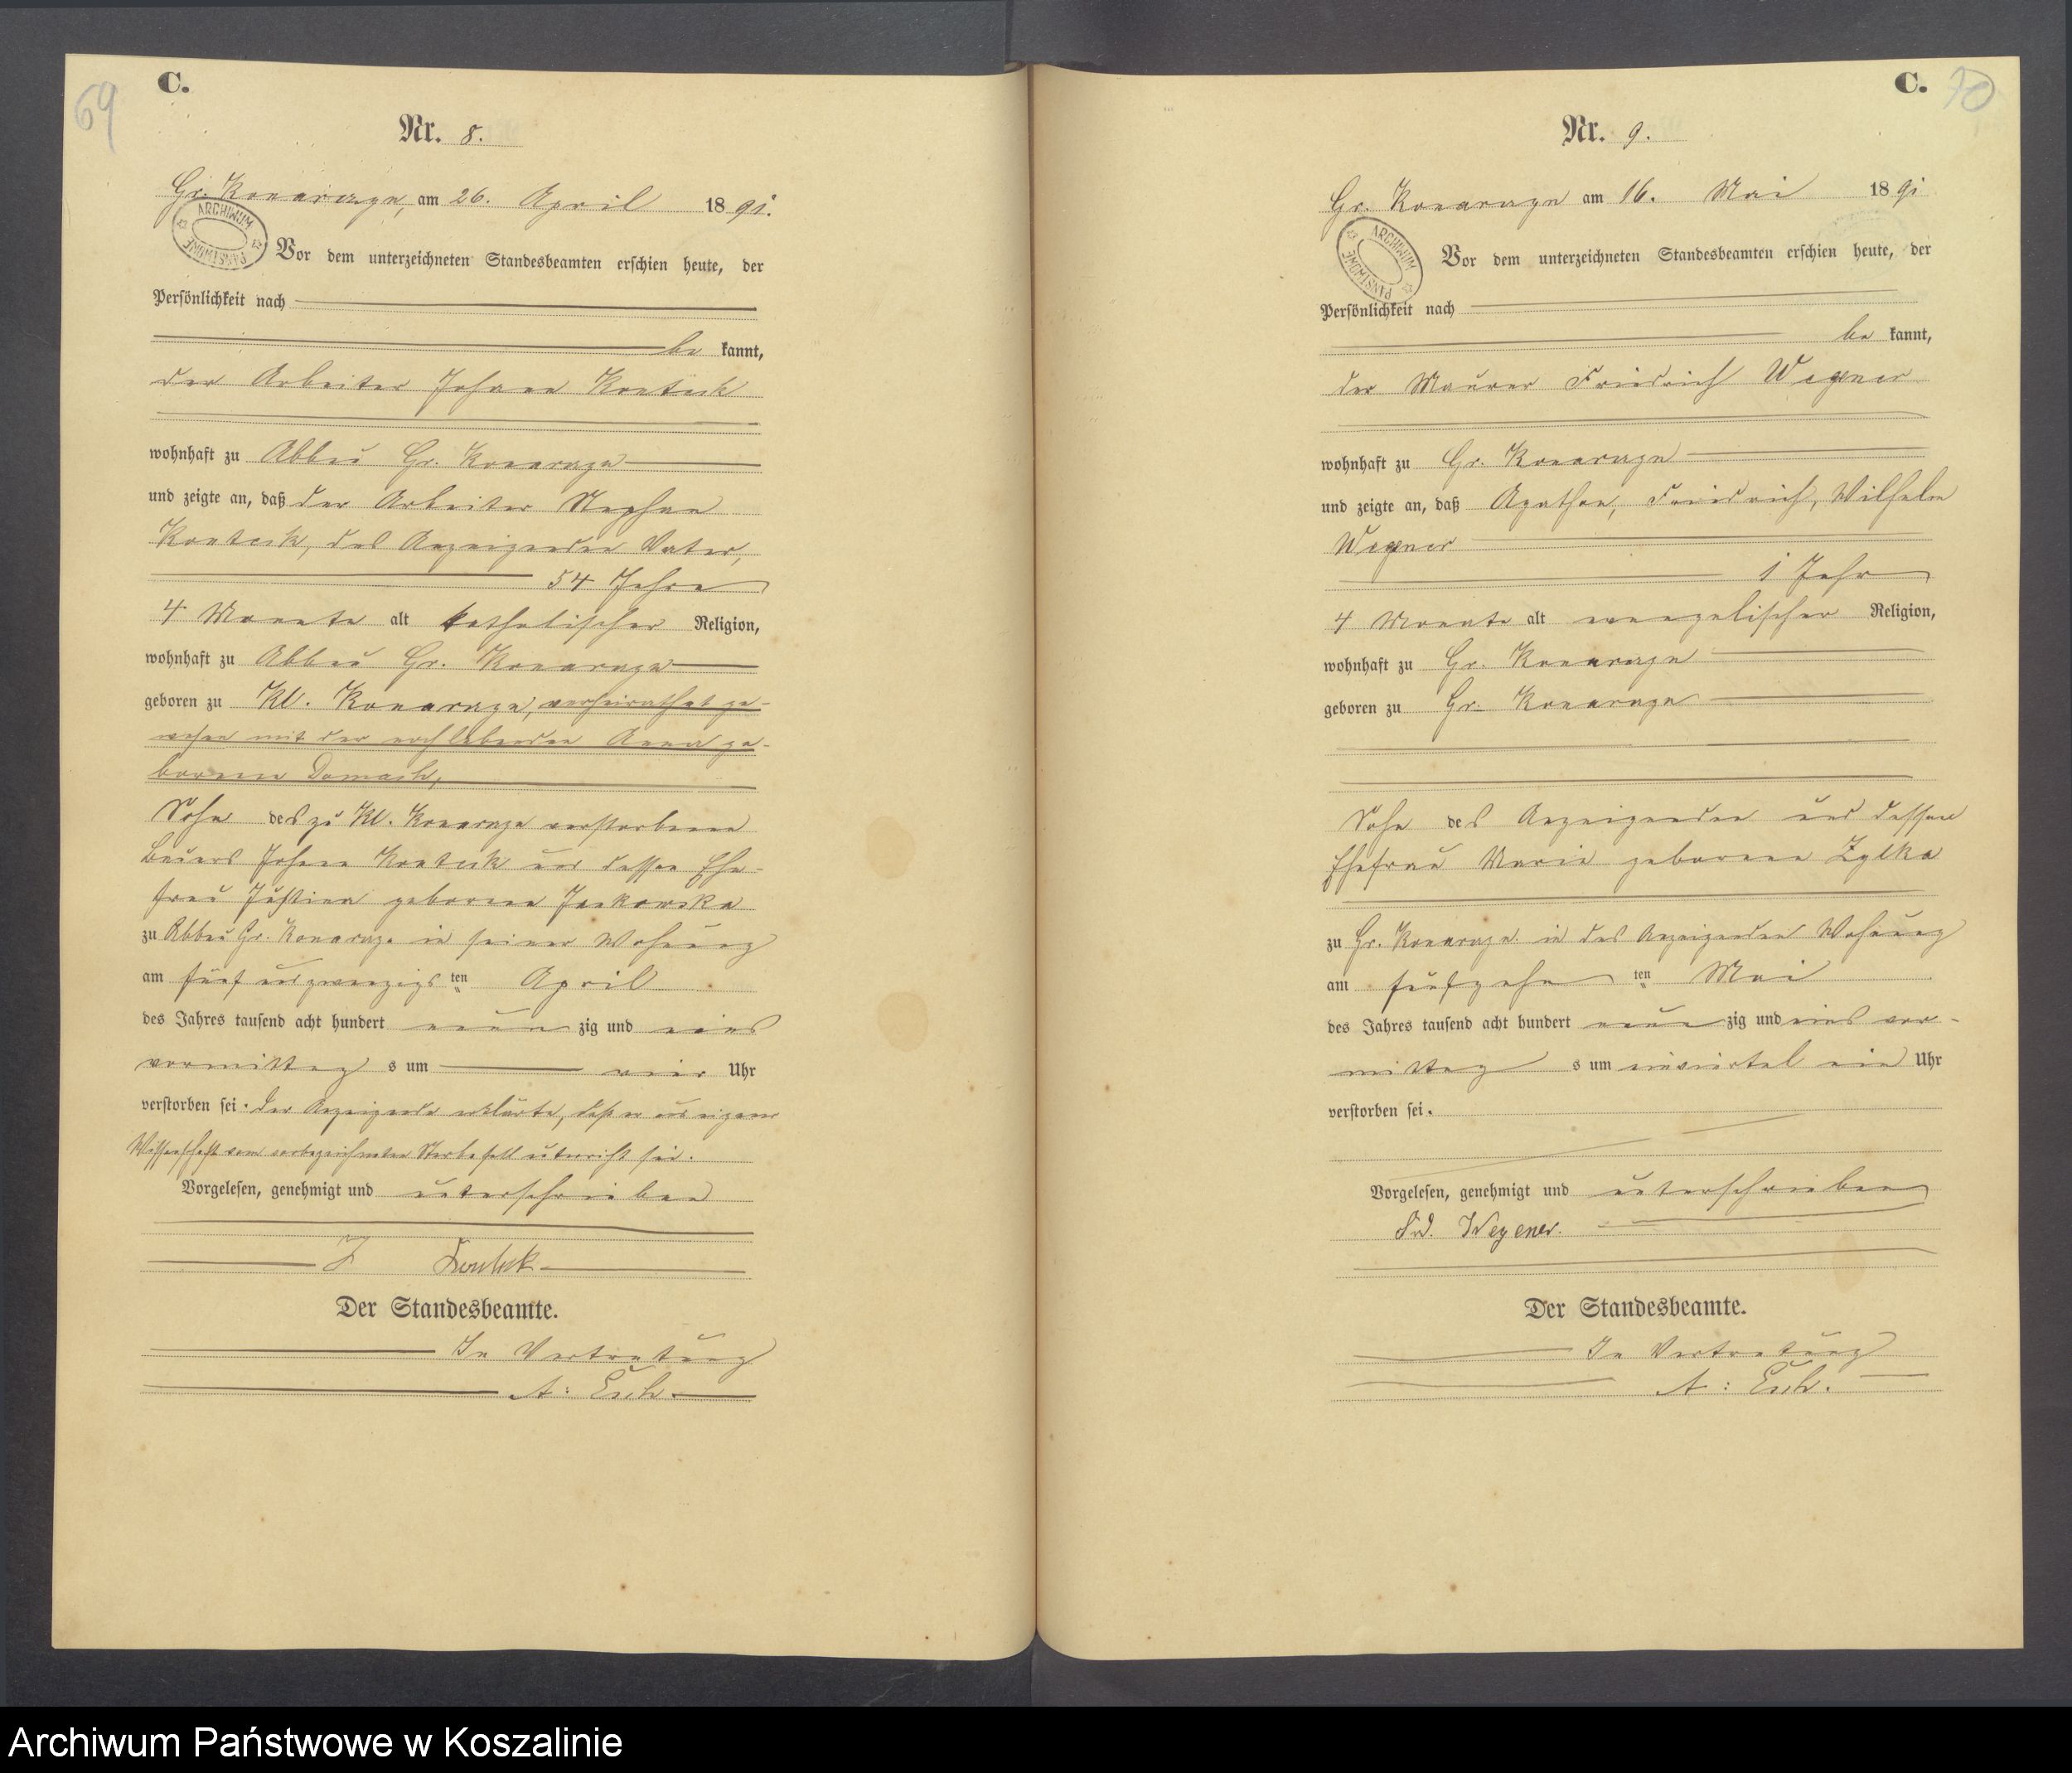 69
C.
Nr. 8.
Gr. Konarzyn, am 26. April 1891.
ARCHIWUM PAŃSTWOWE
Vor dem unterzeichneten Standesbeamten erschien heute, der
Persönlichkeit nach
be kannt,
der Arbeiter Johann Kontek
wohnhaft zu Abbau Gr. Konarzyn
und zeigte an, daß der Arbeiter Stephan
Kontek, des Anzeigenden Vater,
54 Jahre
4 Monate alt katholischer Religion,
wohnhaft zu Abbau Gr. Konarzyn
geboren zu Kl. Konarzyn, verheirathet ge-
wesen mit der noch lebenden Anna ge-
borenen Domach,
Sohn des zu Kl. Konarzyn verstorbenen
Bauers Johann Kontek und dessen Ehe-
frau Justina geborene Jankowska
zu Abbau Gr. Konarzyn in seiner Wohnung
am fünf und zwanzigs ten April
des Jahres tausend acht hundert neun zig und eins
vormittag s um vier Uhr
verstorben sei. Der Anzeigende erklärte, daß er aus eigener
Wissenschaft vom vorbezeichneten Sterbefall unterricht sei.
Vorgelesen, genehmigt und unterschrieben
J Kontek
Der Standesbeamte.
In Vertretung
A:
C. 70
Nr. 9.
Gr. Konarzyn am 16. Mai 1891
ARCHIWUM PAŃSTWOWE
Vor dem unterzeichneten Standesbeamten erschien heute, der
Persönlichkeit nach
be kannt,
der Maurer Friedrich Wegner
wohnhaft zu Gr. Konarzyn
und zeigte an, daß Agathon, Friedrich, Wilhelm
Wegner
1 Jahr
4 Monate alt evangelischer Religion,
wohnhaft zu Gr. Konarzyn
geboren zu Gr. Konarzyn
Sohn des Anzeigenden und dessen
Ehefrau Marie geborene Zylka
zu Gr. Konarzyn in des Anzeigenden Wohnung
am fünfzehn ten Mai
des Jahres tausend acht hundert neun zig und eins vor-
mittag s um einviertel ein Uhr
verstorben sei.
Vorgelesen, genehmigt und unterschrieben
Frd. Wegener.
Der Standesbeamte.
In Vertretung
A:
Archiwum Państwowe w Koszalinie